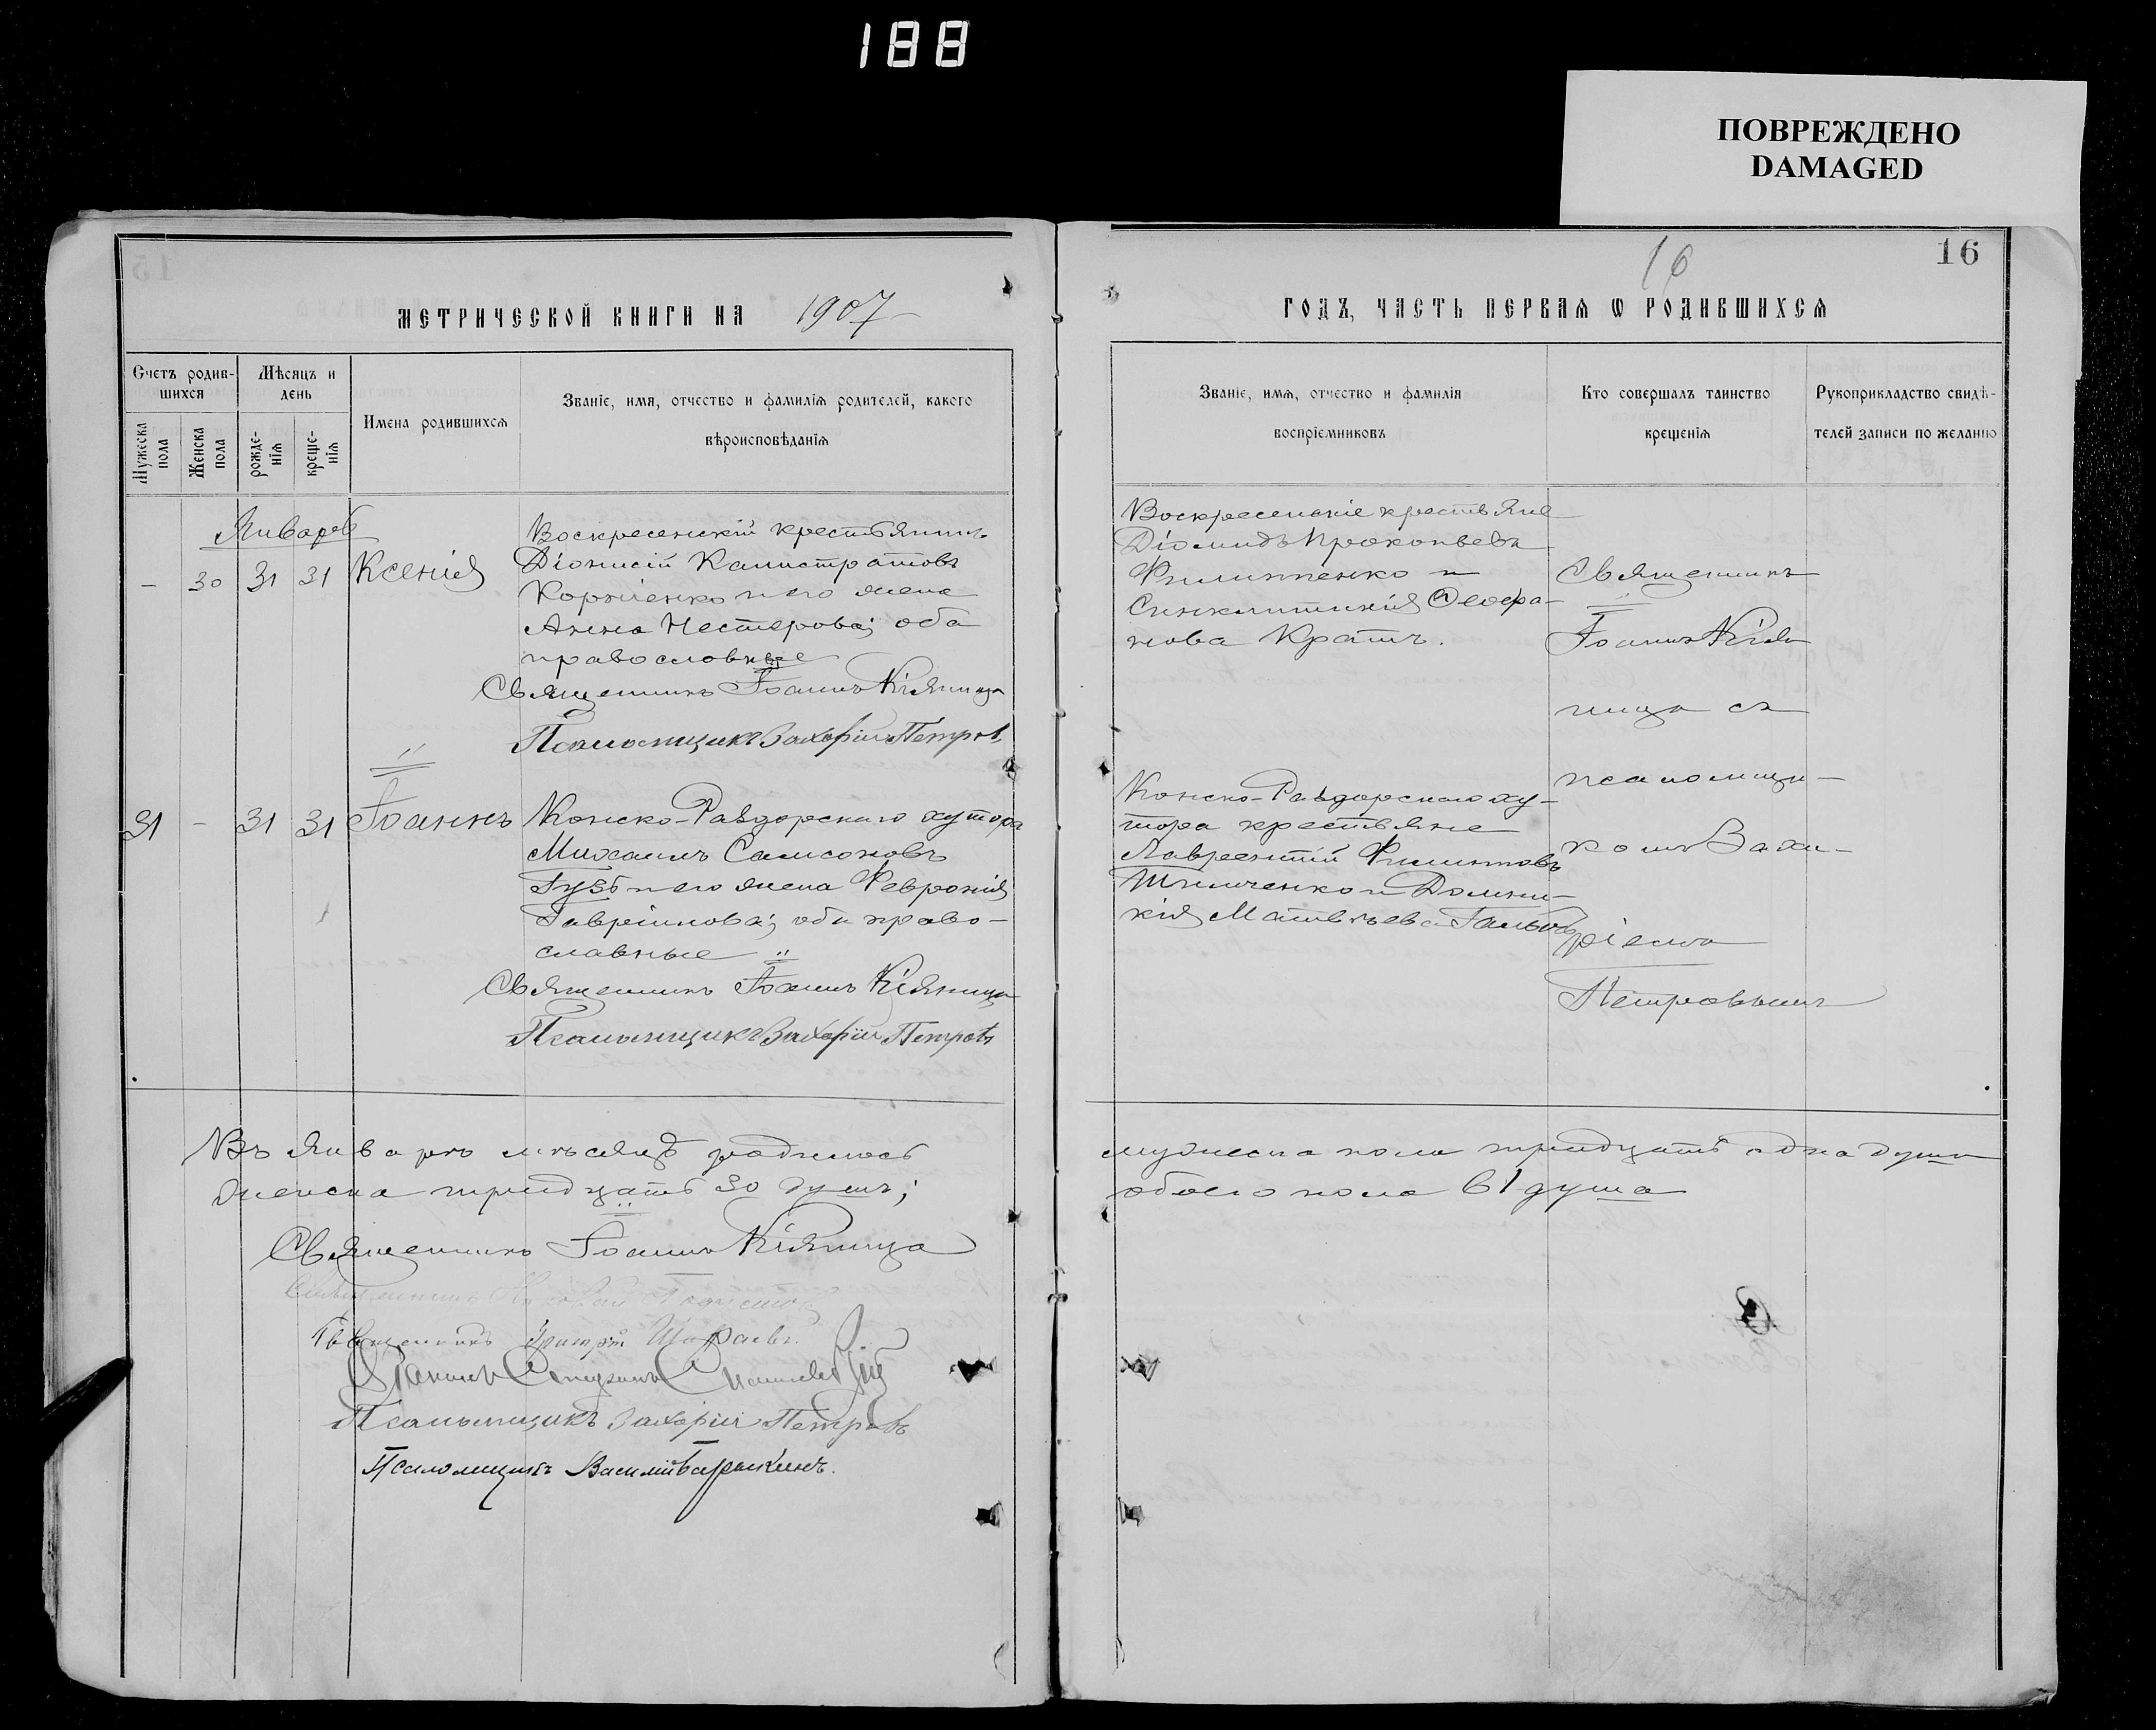 188
ПОВРЕЖДЕНО
DAMAGED
МЕТРИЧЕСКОЙ КНИГИ НА 1907
Счетъ родив-
шихся
Мѣсяцъ и
день
Мужеска
пола
Женска
пола
рожде-
нія
креще-
нія
Имена родившихся
Званіе, имя, отчество и фамилія родителей, какого
вѣроисповѣданія
Январь
– 30 31 31 Ксенія
Воскресенскій крестьянинъ
Діонисій Калистратовъ
Корніенко и его жена
Анна Нестерова; оба
православные
Священникъ Іоаннъ Кіяница
Псаломщикъ Захарій Петровъ
31 – 31 31 Іоаннъ
Конско-Раздорскаго хутора
Михаилъ Самсоновъ
Гузь и его жена Февронія
Гавріилова; оба право-
славные
Священникъ Іоаннъ Кіяница
Псаломщикъ Захарій Петровъ
Въ январѣ мѣсяцѣ родилось
женска тридцать 30 душъ;
Священникъ Іоаннъ Кіяница
Священникъ
Священникъ
Псаломщикъ Захарій Петровъ
Псаломщикъ Василій
16
16
ГОДЪ, ЧАСТЬ ПЕРВАЯ Ѡ РОДИВШИХСЯ
Званіе, имя, отчество и фамилія
воспріемниковъ
Кто совершалъ таинство
крещенія
Рукоприкладство свидѣ-
телей записи по желанію
Воскресенскіе крестьяне
Діомидъ Прокопьевъ
Филиппенко и
Синклитикія Ѳеофа-
нова Кратъ.
Конско-Раздорскаго ху-
тора крестьяне
Лаврентій Филипповъ
и Домни-
кія Матвѣева
Священникъ
Іоаннъ Кія-
ница съ
псаломщи-
комъ Заха-
ріемъ
Петровымъ
мужеска пола тридцать одна душа
обоего пола 61 душа